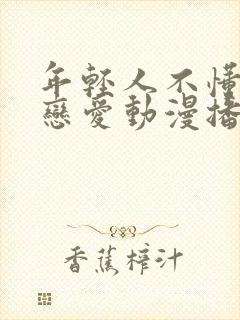 年輕人不懂
戀愛動漫播
香蕉榨汁